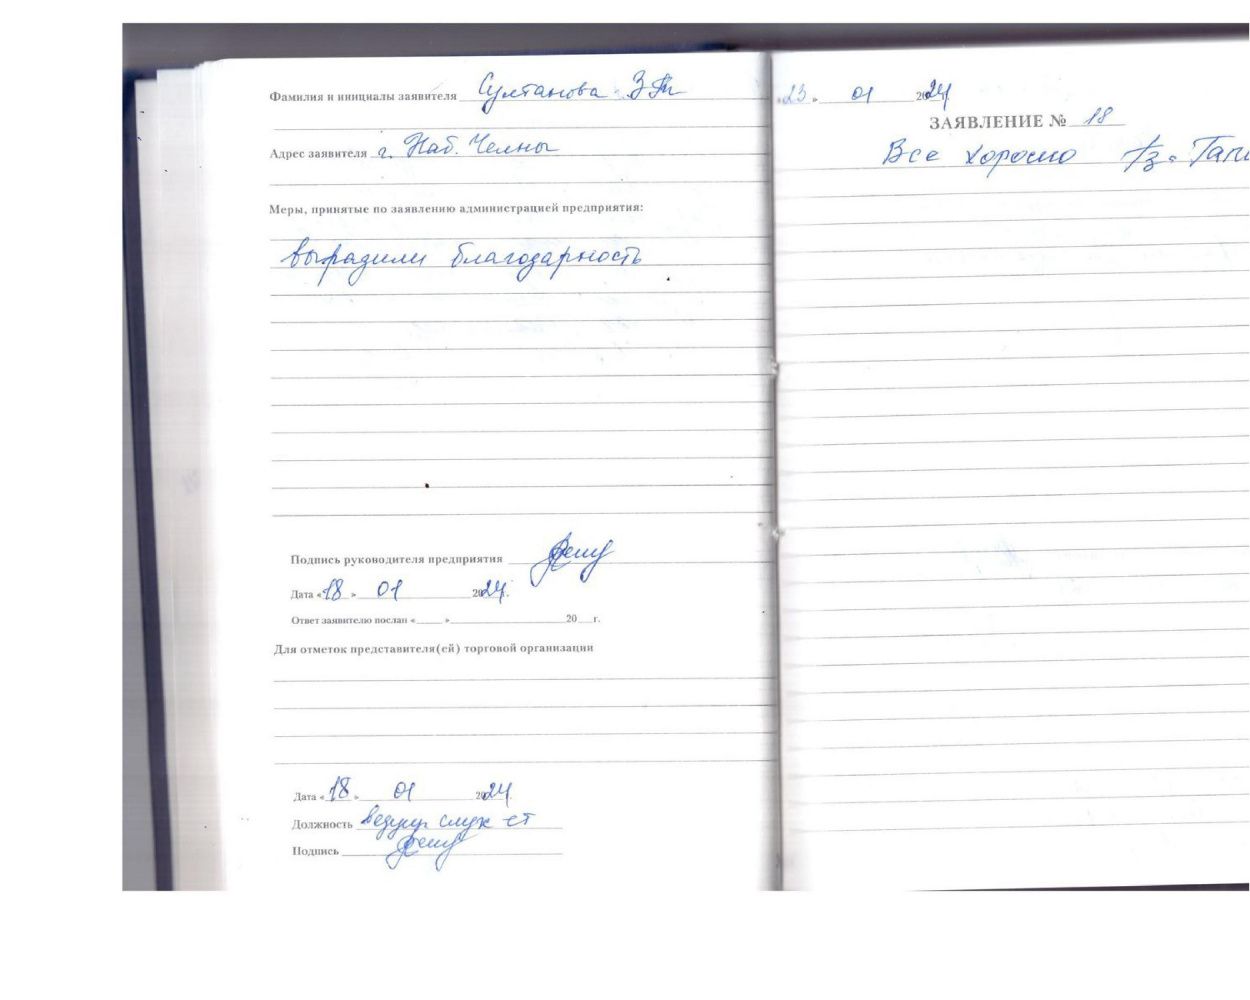 Фамилия и инициалы заявителя Султанова З
Адрес заявителя г. Наб. Челны
Меры, принятые по заявлению администрацией предприятия:
выразили благодарность
Подпись руководителя предприятия
Дата «18 » 01 2024г.
Ответ заявителю послан « » 20 г.
Для отметок представителя(ей) торговой организации
Дата «18 » 01 2024
Должность
Подпись
«23 » 01 2024
ЗАЯВЛЕНИЕ № 18
Все хорошо